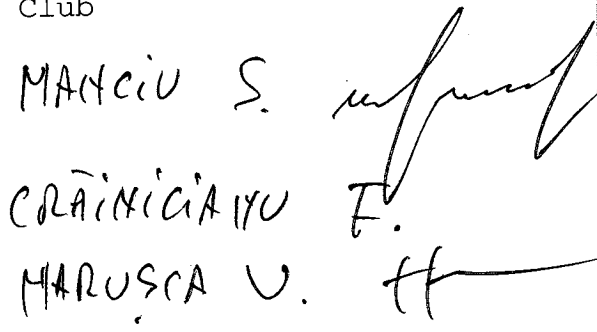 Club
MANCIU S.
CRĂINICIANU F.
MARUȘCA V.